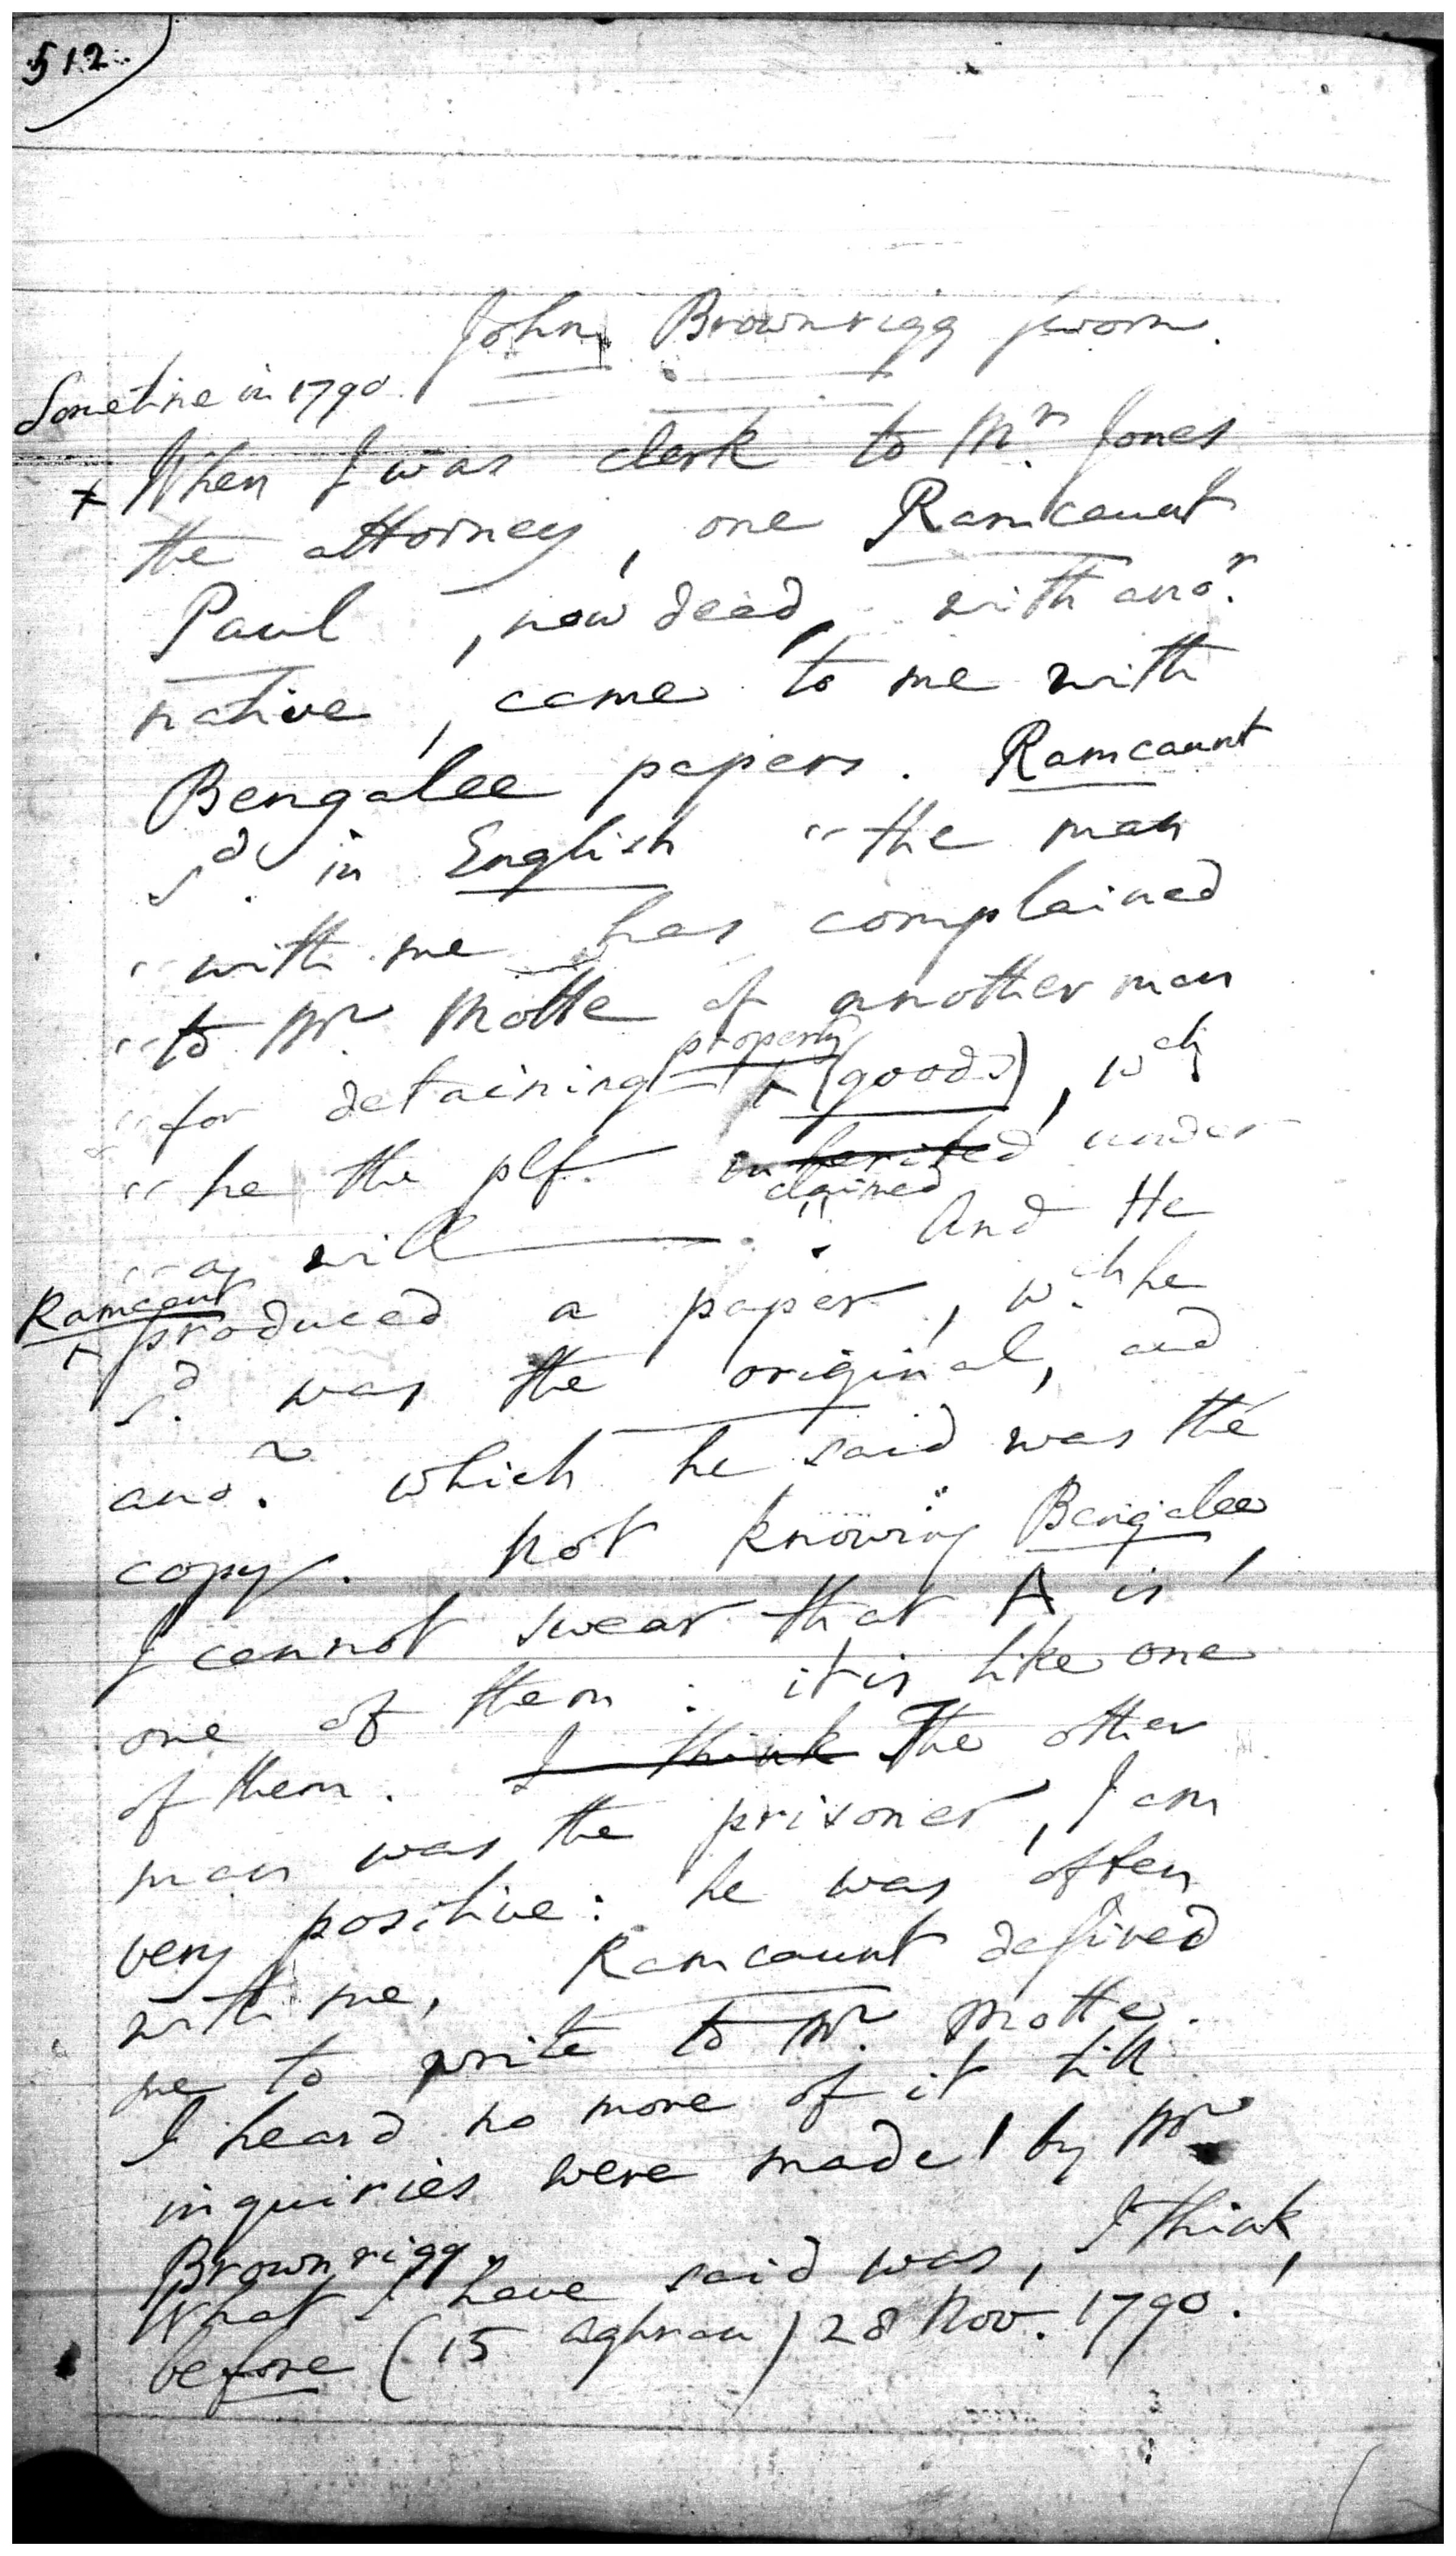 512
John Brownrigg sworn.
Sometime in 1790.
+ When I was clerk to Mr. Jones
the attorney, one Ramcaunt
Paul, now dead, with anor.
native, came to me with
Bengalee papers. Ramcaunt
sd. in English "the man
"with me has complained
"to Mr. Motte of another man
property
"for detaining (goods), wch.
"he the plf. inherited under
claimed
"a will ". And He
Ramcaut
produced a paper, wch. he
sd. was the original, and
anor. which he said was the
copy. Not knowing Bengalee,
I cannot swear that A is
one of them: it is like one
of them. I think The other
man was the prisoner, I am
very positive: he was often
with me, Ramcaunt desired
me to write to Mr. Motte.
I heard no more of it till
inquiries were made by Mr.
Brownrigg.
What I have said was, I think,
before (15 Aghran) 28 Nov. 1790.